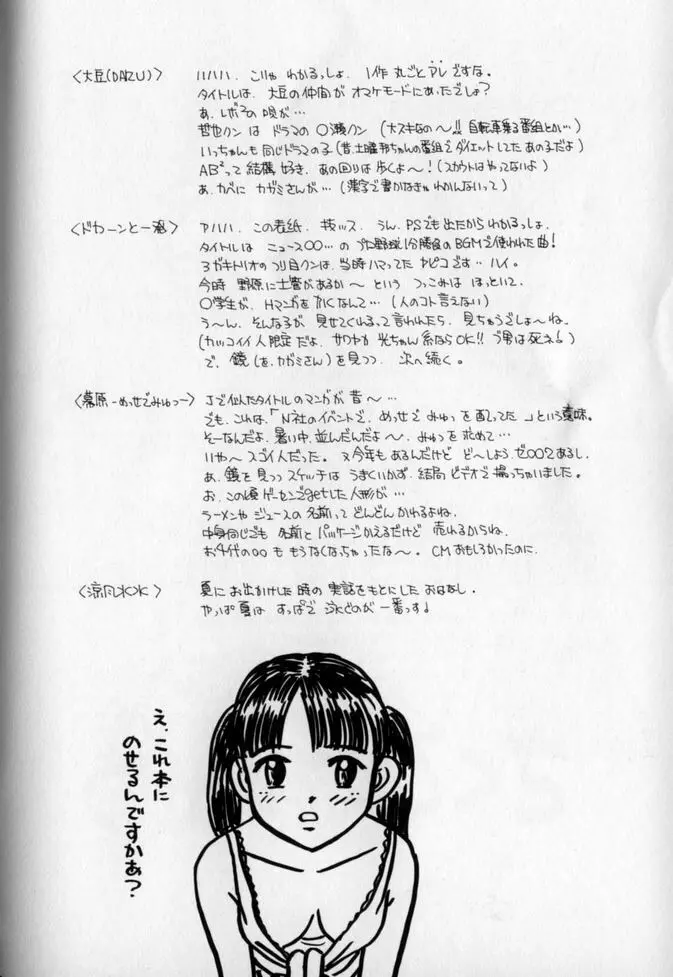 〈大豆(DAIZU)〉
ハハハ、こりゃ わかるっしょ、1作 丸ごと アレ ですな。
タイトルは、大豆の仲間が オマケモードに あいたでしょ?
あ、レボ²の 唄が…
哲也クン は ドラマの ○瀬クン (大スキなの〜!! 自転車乗る番組とか…)
いっちゃんも 同じドラマの子 (昔、土曜邦ちゃんの番組で ダイエットしてた あの子だよ)
AB²って 結構 好き、あの回りは 歩くよ〜! (スカウトは やってないよ)
あ、カベに カガミさんが… (漢字で書かなきゃ わかんないって)
〈ドカーンと一発〉
アハハ、この表紙、技ッス、うん、PSでも出たからわかるっしょ、
タイトルは ニュース○○… の プロ野球1分勝負の BGMで使われた曲!
3ガキトリオの つり目クンは、当時ハマってた ヤピコです… ハイ。
今時 野原に 土管があるか〜 という つっこみは ほっといて、
○学生が、Hマンガを かくなんて… (人のコト言えない)
う〜ん、そんな子が 見せてくれるって言われたら、見ちゃうでしょ〜ね。
(カッコイイ人限定だよ、サワヤカ 光ちゃん系ならOK!! ブ男は死ネ!)
で、鏡(を、カガミさん)を見つつ 次へ続く。
〈幕原-めっせでみゅっ-〉
Jで似たタイトルのマンガが 昔〜…
でも、これは、「N社のイベントで、めっせで みゅっを 配ってた」という意味。
そーなんだよ、暑い中、並んだんだよ〜、みゅっを 求めて…
いや〜スゴイ人だった。 又今年も あるんだけど ど〜しよう、ゼ○○2あるし、
あ、鏡を見つつ スケッチは うまくいかず、結局 ビデオで 撮っちゃいました。
お、この頃 ゲーセンでgetした 人形が…
ラーメンや ジュースの 名前って どんどん かわるよね、
中身同じでも 名前と パッケージかえるだけど 売れるからね、
お4代の○○も もうなくなっちゃったな〜。 CM おもしろかったのに、
〈涼風水〉
夏に お出かけした時の 実話をもとにした おはなし.
やっぱ 夏は すっぱで 泳ぐのが 一番っす!
え、これ本に
のせるんですかあ?